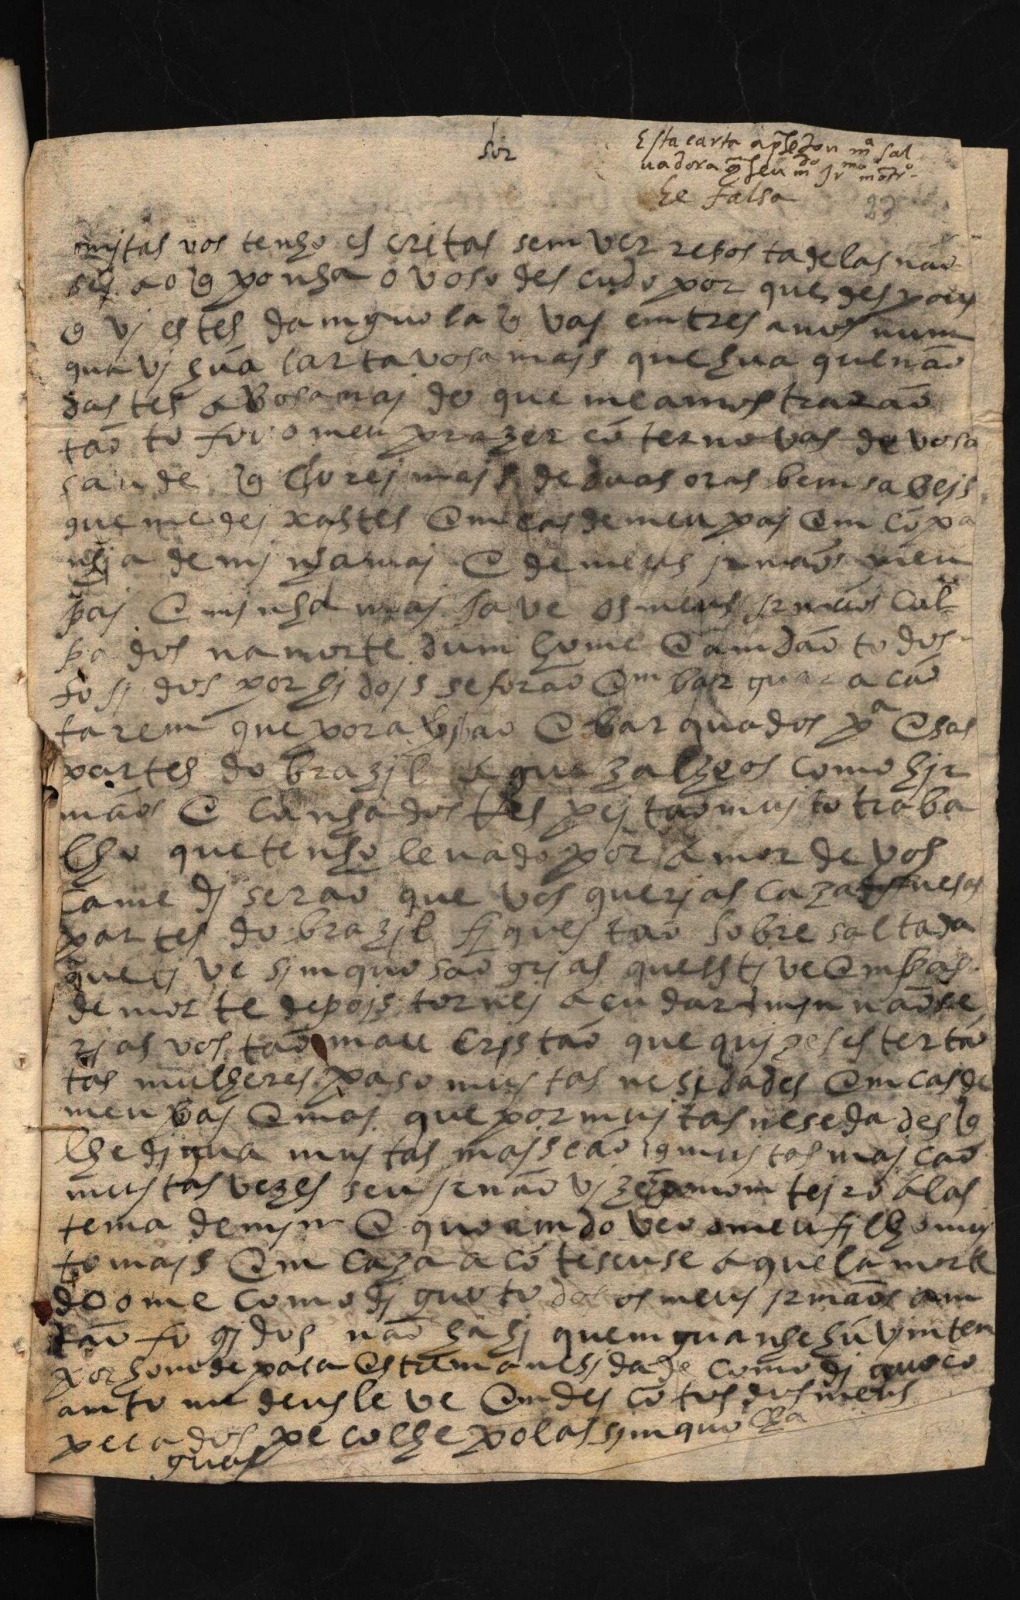 Sor
Esta carta apresẽtou mª Sal
vadora
he falsa
23
mujtas vos tenho escritas sem ver reposta delas não
sej ao q̃ ponha o voso descudo por que despois
q̃ vj estes damguola q̃ vaj em tres anos num
qua vj hũa carta vosa majs que hua que não
dastes a vosa maj do que me a mostrarão
tão to foi o meu prazer cõ ter novas de vosa
saude q̃ chorej majs de duas oras bem sabejs
que me dejxastes em cas de meu paj em cõpa
nhja de mjnha maj e de meus jrmãos meu
paj e mjnha maj save os meus jrmãos cul
pados na morte dum home e amdão todos
fojjdos por hj dojs se forão embarguar a cão
tarem que por ahj vão ebarquados pª esas
partes do brazjl aguazalheos como hjr
mãos e cunhados respejtão mujto traba
lho que tenho levado por amor de vos
ca me djserão que vos querjas cazar nesas
partes do brazjl fjquej tão sobresaltada
que tjve sjmquo sãogrjas que estjve em pas
de mor te depojs tornej a cudar em mjm não se
rjas vos tão mau crjstão que qujzeseis ter tã
tas mulheres paso mujtas nesidades em cas de
meu paj e maj que por mujtas nesedades q̃
lhe djgua mujtas majs são q̃ mujtas maj são
mujtas vezes seu jrmão vjzẽ monteiro a las
tema de mjm e quoamdo veo o meu fjlho muj
to majs em caza a cõteseuse aquela morte
do ome como djguo todos os meus jrmãos am
dão fogjdos não ha hj quem guanhe hũ vjmtem
por homde pasa estrema nesjdade como djguo
amto me deus leve em des cõtos dos meus
pecados pecolhe polas sjmquo cha
guas